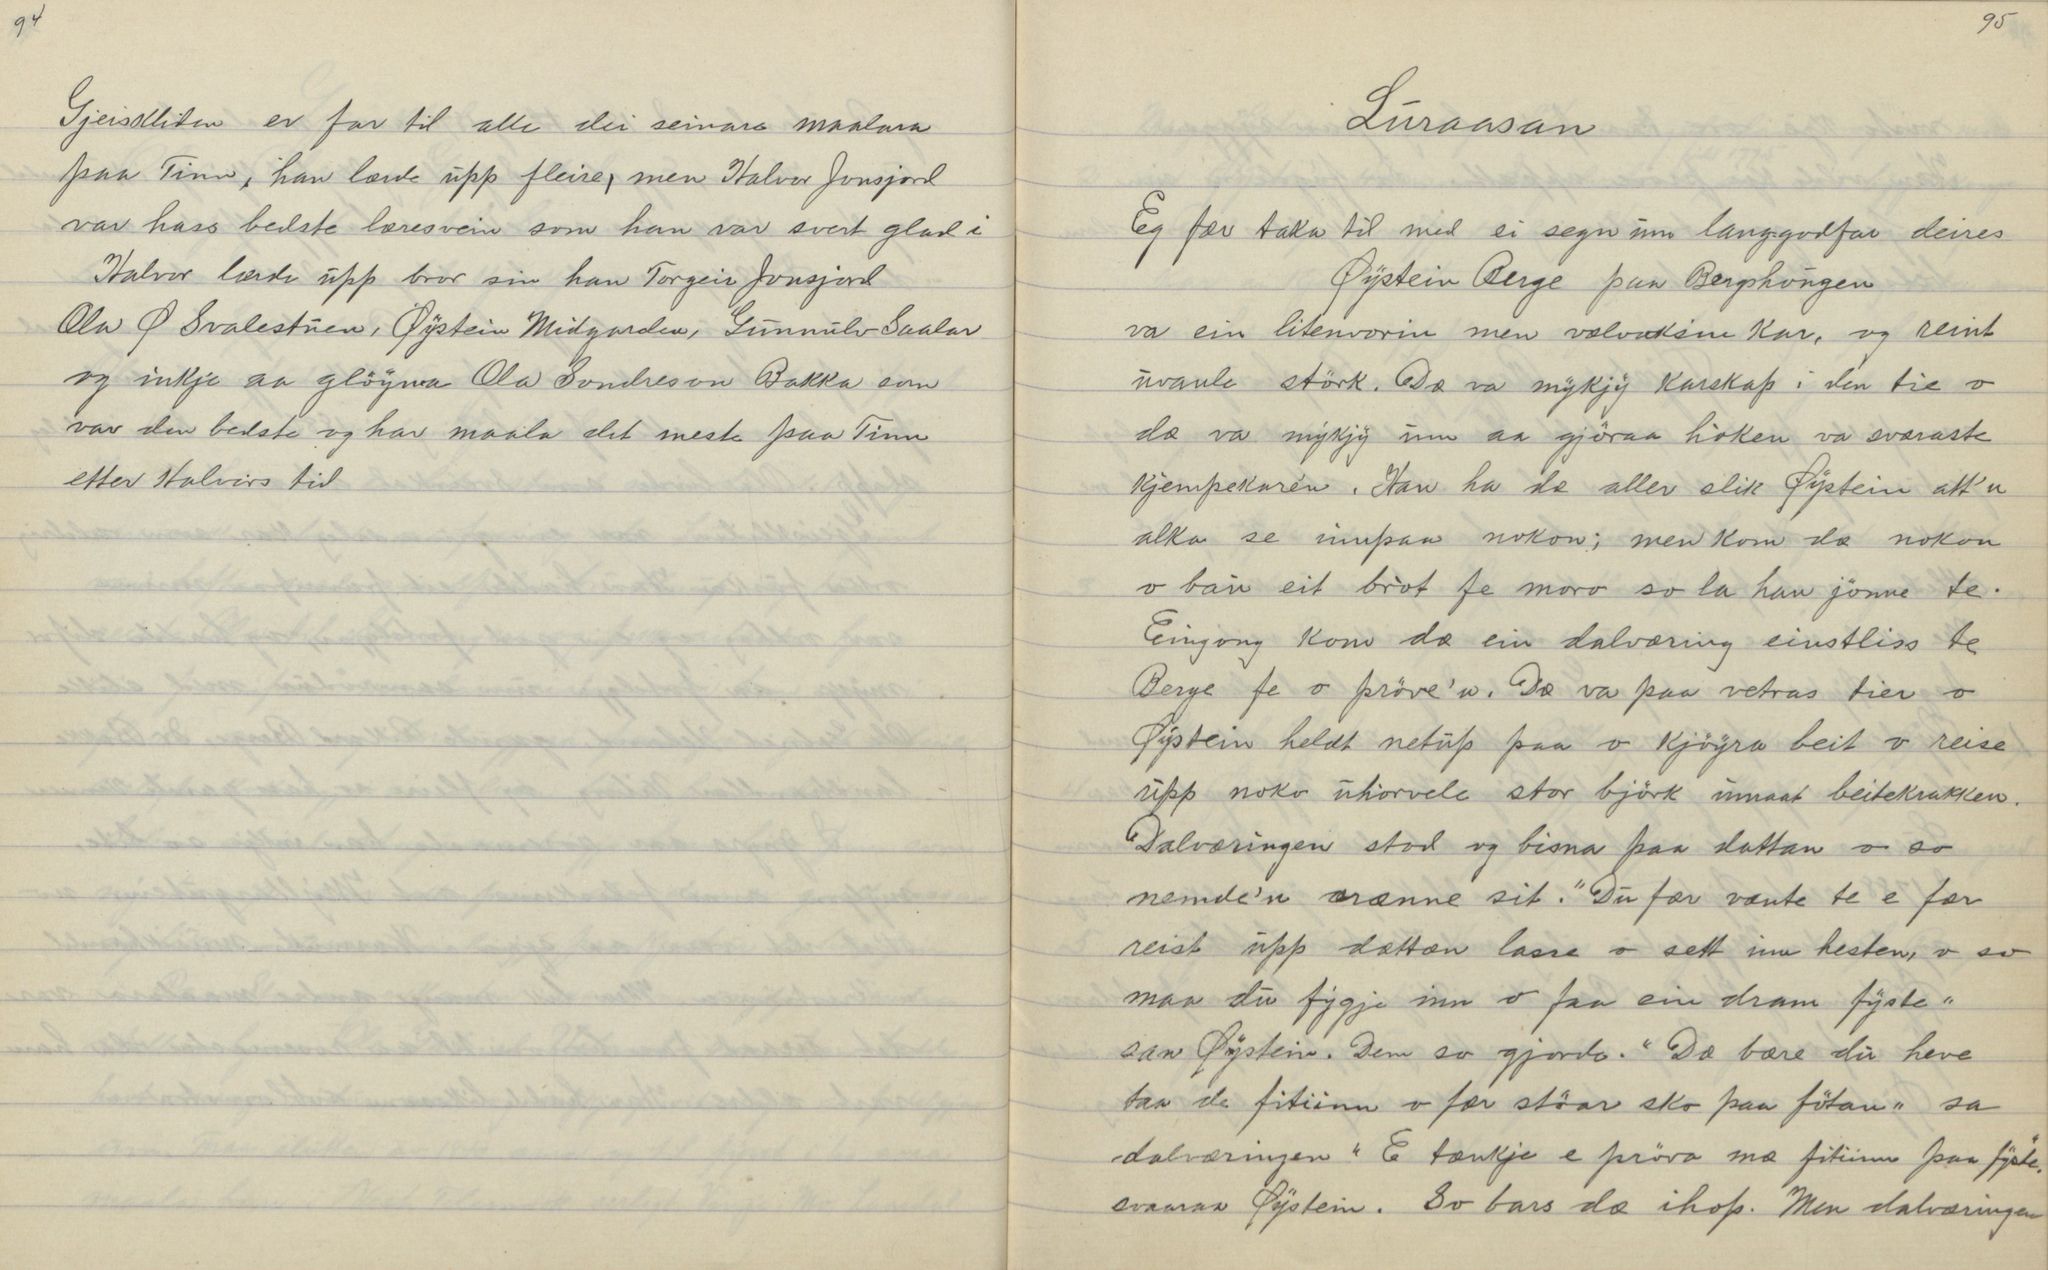 94
Gjeiskliten er far til alle dei seinare maalara
paa Tinn, han lærde upp fleire, men Halvor Jonsjord
var hass bedste læresvein som han var svert glad i
Halvor lærde upp bror sin han Torgeir Jonsjord
Ola Ø Svalestuen, Øystein Midgarden, Gunnulv Saalar
og inkje aa glöyma Ola Sondreson Bakka som
var den bedste og har maala det meste paa Tinn
etter Halvors tid
95
Luraasan
Eg fær taka til med ei segn um langgodfar deires
Øystein Berge paa Berghaugen
va ein litenvorin men vælvaksin kar, og reint
uvanle störk. Dæ va mykjy karskap i den tie o
dæ va mykjy um aa gjöraa hoken va sværaste
kjempekaren. Han ha dæ aller slik Øystein att'n
alka se innpaa nokon; men kom dæ nokon
o bau eit brot fe moro so la han jönne te.
Eingong kom dæ ein dalværing einstliss te
Berge fe o pröve'n. Dæ va paa vetras tier o
Øystein heldt netup paa o kjöyra beit o reise
upp noko uhorvele stor björk innaat beitekrakken.
Dalværingen stod og bisna paa dattan o so
nemde'n ærænne sit. "Du fær vænte te e fær
reist upp dættæn lasse o sett inn hesten, o so
maa du fygje inn o faa ein dram fyste"
sae Øystein. Dem so gjorde. "Dæ bære du heve
taa de fitiinn o fær stöar sko paa fötan" sa
dalværingen "E tænkje e pröva mæ fitiinn paa fyste"
svaraa Øystein. So bars dæ ihop. Men dalværingen